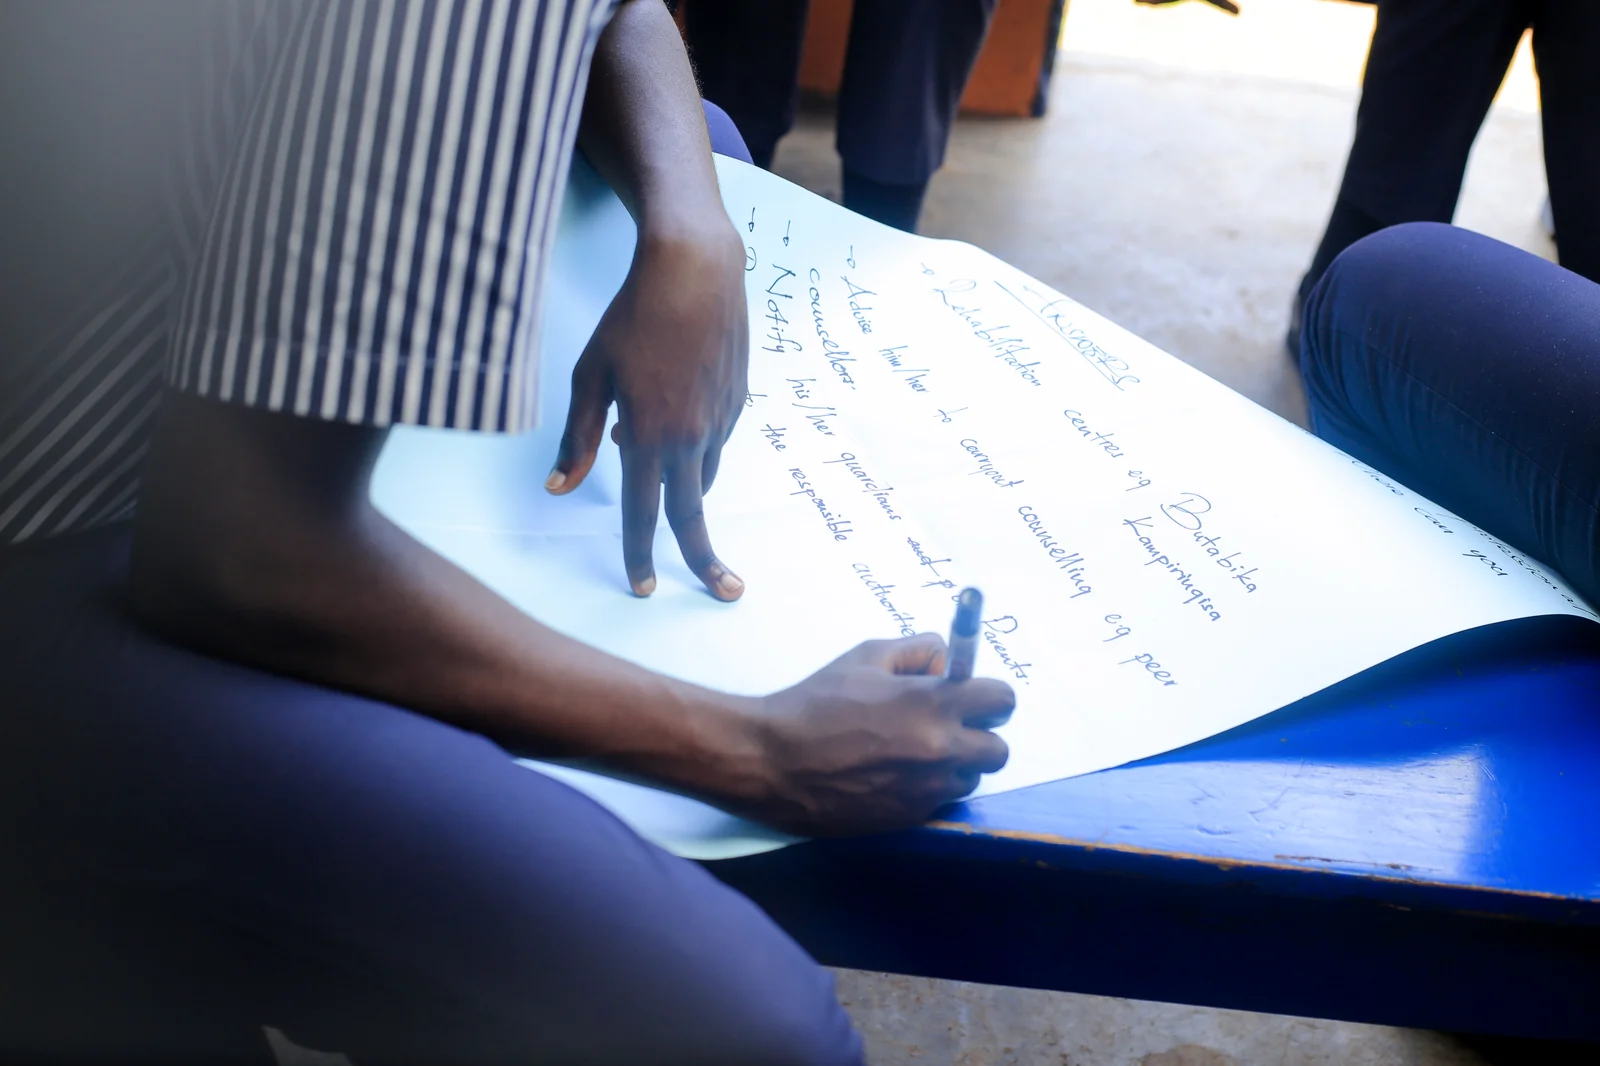 can you
ANSWERS
→ Rehabilitation centres e.g Butabika
Kampiringisa
→ Advise him/her to carryout counselling e.g peer
counsellors.
→ Notify his/her guardians Parents.
→ to the responsible authorities